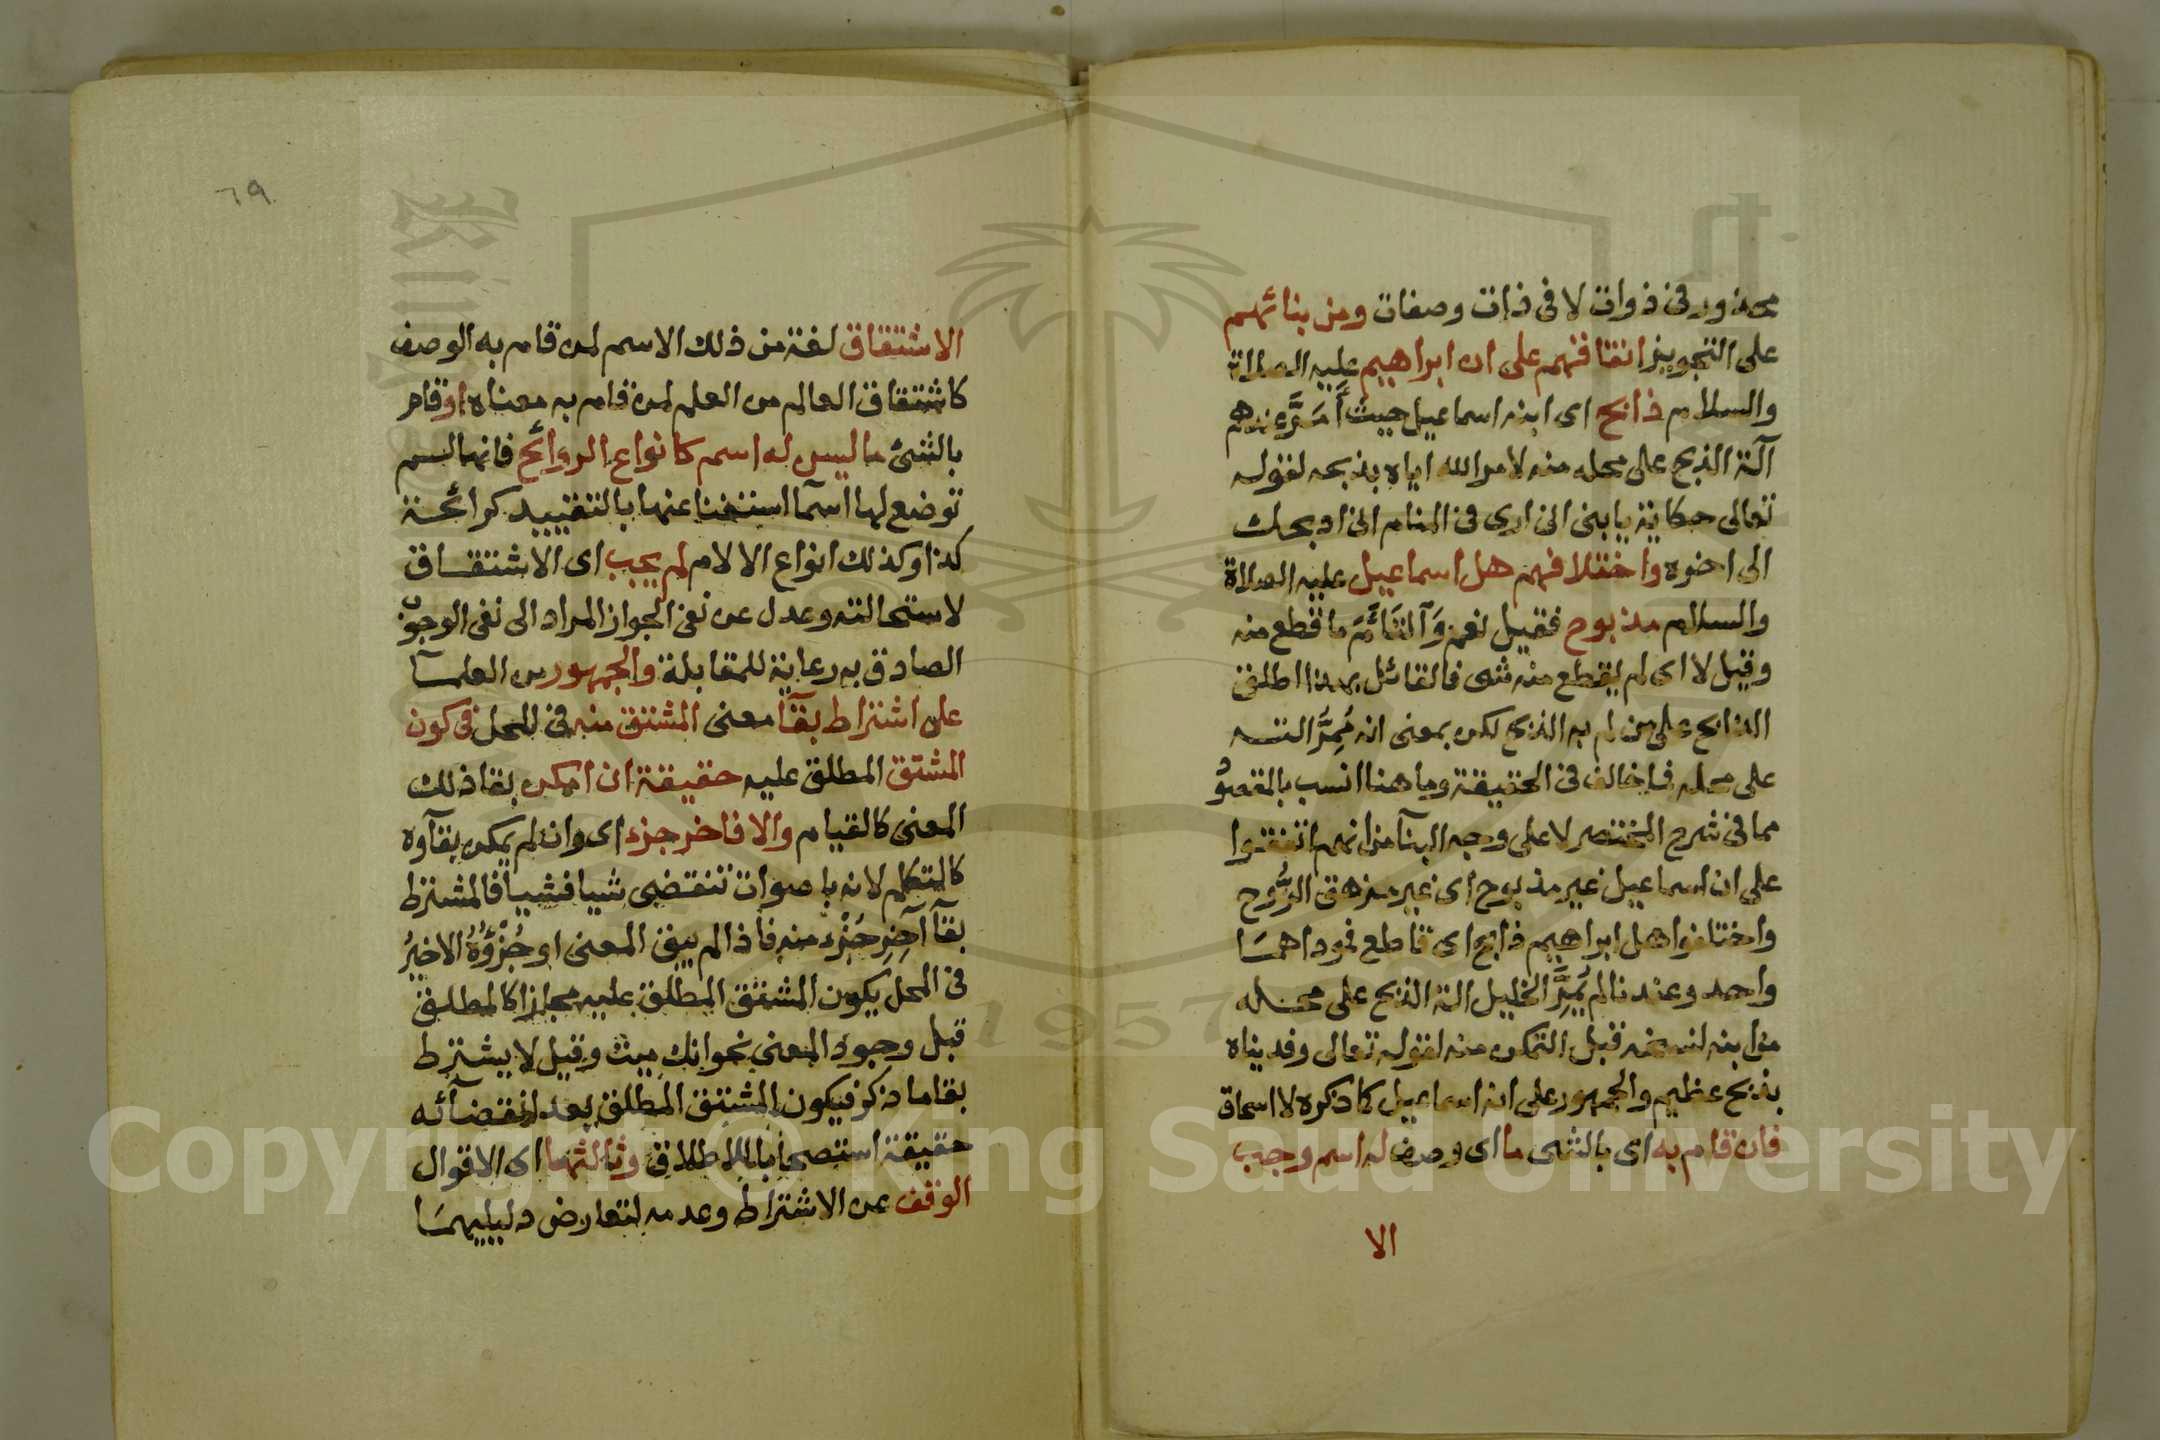 محذور فى ذوات لا فى ذات وصفات ومن بنائهم
على التجويز اتفاقهم على ان ابراهيم عليه الصلاة
والسلام ذابح اى ابنه اسماعيل حيث أَمَرَّ عندهم
آلة الذبح على محله منه لامر الله اياه بذبحه لقوله
تعالى حكاية يا بنى انى ارى فى المنام انى اذبحك
الى اخره واختلافهم هل اسماعيل عليه الصلاة
والسلام مذبوح فقيل نعم وَالتَأَمَ ما قطع منه
وقيل لا اى لم يقطع منه شى فالقائل بهذا اطلق
الذابح على من لم به الذبح لكن بمعنى انه مُمِرُّ الته
على محله فما خالف فى الحقيقة وما هنا انسب بالمقصود
مما فى شرح المختصر لا على وجه البنآ من انهم اتفقوا
على ان اسماعيل غير مذبوح اى غير مزهق الرُّوح
واختلفوا هل ابراهيم ذابح اى قاطع فموداهمَا
واحد وعندنا لم يُمِرَّ الخليل الة الذبح على محله
من ابنه لنسخه قبل التمكن منه لقوله تعالى وفديناه
بذبح عظيم والجمهور على انه اسماعيل كما ذكره لا اسحاق
فان قام به اى بالشى ما اى وصف له اسم وجب
الا
٦٩
الاشتقاق لغة من ذلك الاسم لمن قام به الوصف
كاشتقاق العالم من العلم لمن قام به معناه او قام
بالشئ ما ليس له اسم كانواع الروائح فانها لم
توضع لها اسمآ استغنا عنها بالتقييد كرائحة
كذا وكذلك انواع الالام لم يجب اى الاشتقاق
لاستحالته وعدل عن نفى الجواز المراد الى نفى الوجوب
الصادق به رعاية للمقابلة والجمهور من العلمآ
على اشتراط بقآ معنى المشتق منه فى المحل فى كون
المشتق المطلق عليه حقيقة ان امكن بقا ذلك
المعنى كالقيام والا فاخر جزء اى وان لم يمكن بقآوه
كالتكلم لانه باصوات تنقضى شيا فشيا فالمشترط
بقآ آخِرِ جُزْء منه فاذا لم يبق المعنى او جُزْؤُهُ الاخيرُ
فى المحل يكون المشتق المطلق عليه مجازا كالمطلق
قبل وجود المعنى نحو انك ميت وقيل لا يشترط
بقا ما ذكر فيكون المشتق المطلق بعد انقضآئه
حقيقة استصحابا للاطلاق وثالثها اى الاقوال
الوقف عن الاشتراط وعدمه لتعارض دليليهمَا
1957
Copyright © King Saud University